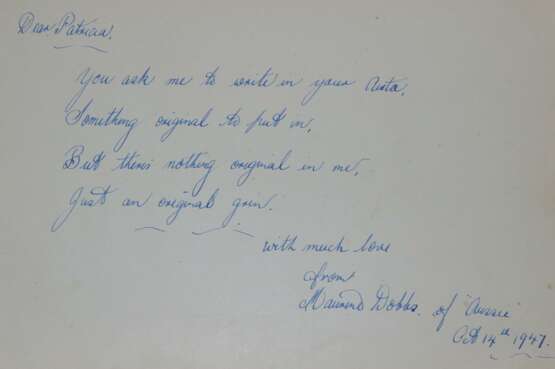 Dear Patricia.
You ask me to write in your Auto,
Something original to put in,
But there's nothing original in me,
Just an original grin.
with much love
from
Maureen Dobbs. of "Aussie"
Oct 14th 1947.